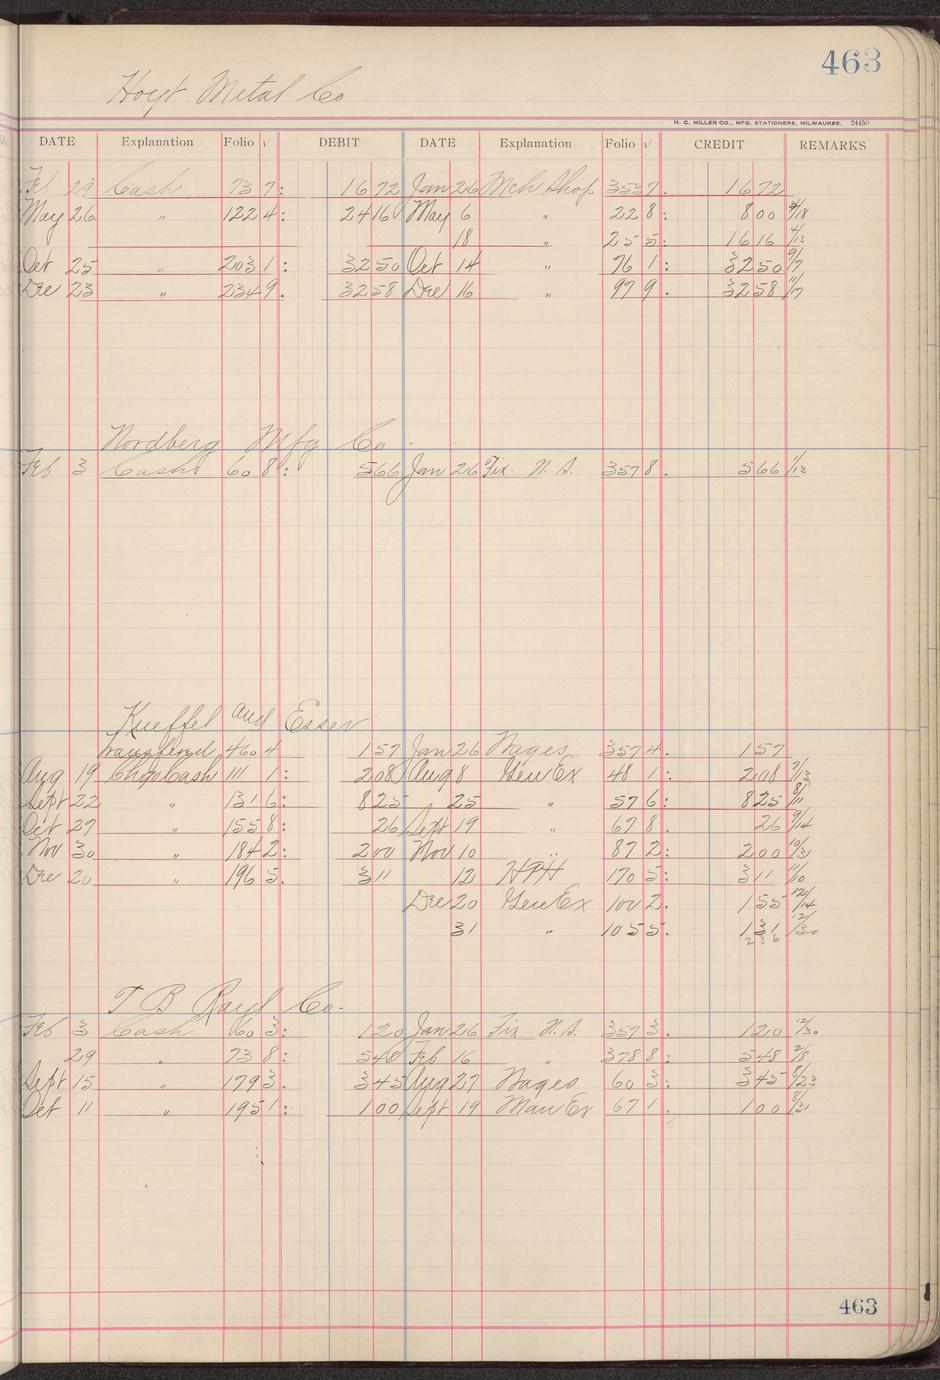 463
Hoyt Metal Co
H. C. MILLER CO., MFG. STATIONERS, MILWAUKEE. 24450
DATE Explanation Folio √ DEBIT DATE Explanation Folio √ CREDIT REMARKS
Feb 29 Cash 73 7: 16 72 Jan 26 Mch Shop 353 7. 16 72
May 26 " 122 4: 24 16 May 6 " 22 8: 8 00 4/18
18 " 25 5: 16 16 4/13
Oct 25 " 203 1: 32 50 Oct 14 " 76 1: 32 50 9/7
Dec 23 " 234 9. 32 58 Dec 16 " 97 9. 32 58 11/17
Nordberg Mfg Co
Feb 3 Cash 60 8: 5 66 Jan 26 Fix. N. S. 357 8. 5 66 1/13
Kueffel and Esser
Transferred 460 4 1 57 Jan 26 Wages 357 4. 1 57
Aug 19 Cash 111 1: 2 08 Aug 8 Gen Ex 48 1: 2 08 7/13
Sept 22 " 131 6: 8 25 25 " 57 6: 8 25 8/11
Oct 27 " 155 8: 26 Sept 19 " 67 8. 26 9/14
Nov 30 " 184 2: 2 00 Nov 10 " 87 2: 2 00 10/31
Dec 20 " 196 5. 3 11 12 HPH 170 5: 3 11 11/10
Dec 20 Gen Ex 100 2. 1 55 12/14
31 " 105 5. 1 31 12/30
2 86
T B Rayl Co.
Feb 3 Cash 60 3: 1 20 Jan 26 Fix N. S. 357 3. 1 20 12/30
29 " 73 8: 5 48 Feb 16 " 378 8: 5 48 2/8
Sept 15 " 179 3. 3 45 Aug 27 Wages 60 3: 3 45 8/23
Oct 11 " 195 1: 1 00 Sept 19 Man Ex 67 1. 1 00 8/31
463